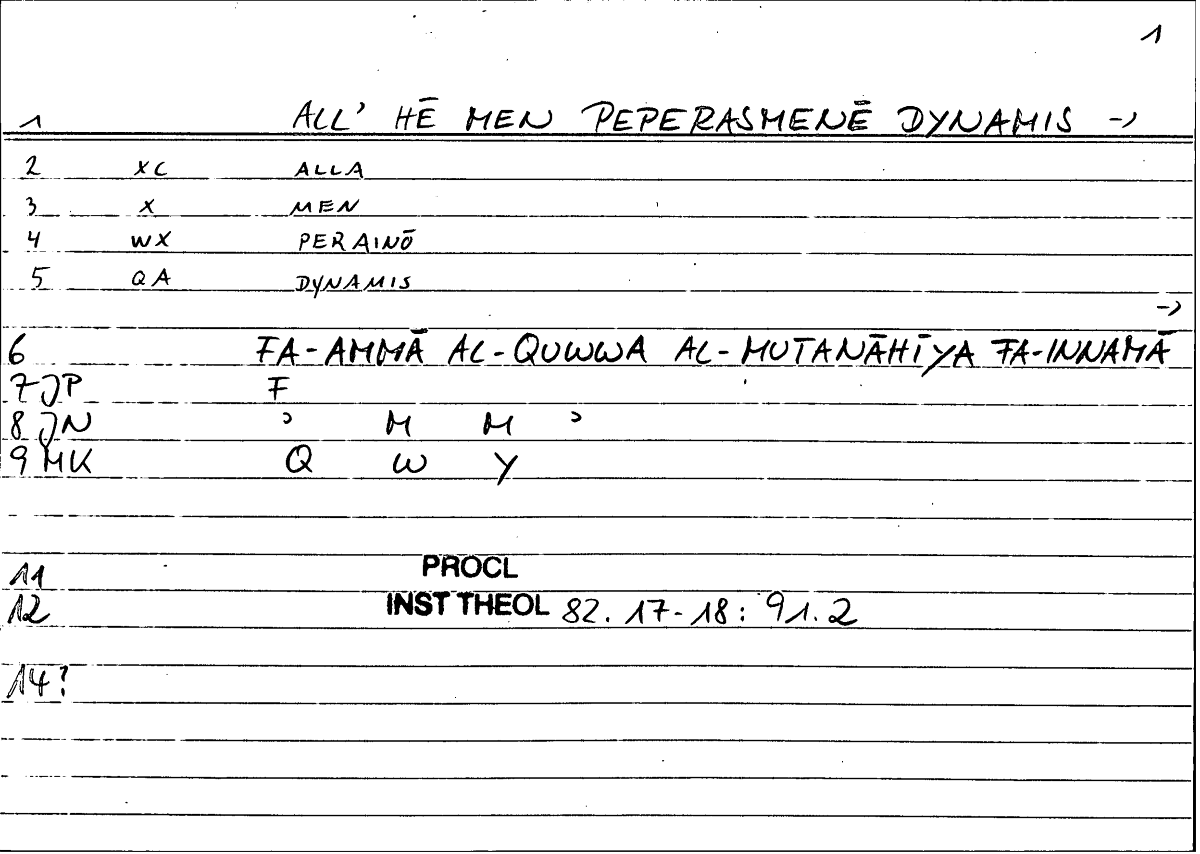 1
1 ALL' HĒ MEN PEPERASMENĒ DYNAMIS ->
2 XC ALLA
3 X MEN
4 WX PERAINŌ
5 QA DYNAMIS
->
6 FA-AMMĀ AL-QUWWA AL-MUTANĀHĪYA FA-INNAMĀ
7 JP F
8 JN ʾ M M ʾ
9 MK Q W Y
11 PROCL
12 INST THEOL 82. 17-18: 91.2
14?